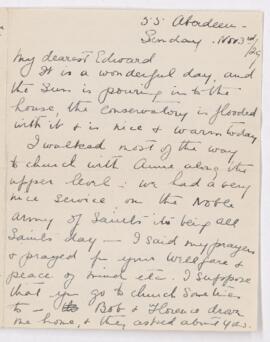 55 Aberdeen -
Sunday. Nov 3rd/29
My dearest Edward
It is a wonderful day, and
the Sun is pouring in to the
house, the conservatory is flooded
with it & is nice & warm today
I walked most of the way
to church with Annie along the
upper level: we had a very
nice service on the Noble
Army of Saints its being all
Saints day — I said my prayers
& prayed for your wellfare &
peace of mind etc. I suppose
that you go to church Sometimes
to — Bob & Florence drove
me home, & they asked about you.